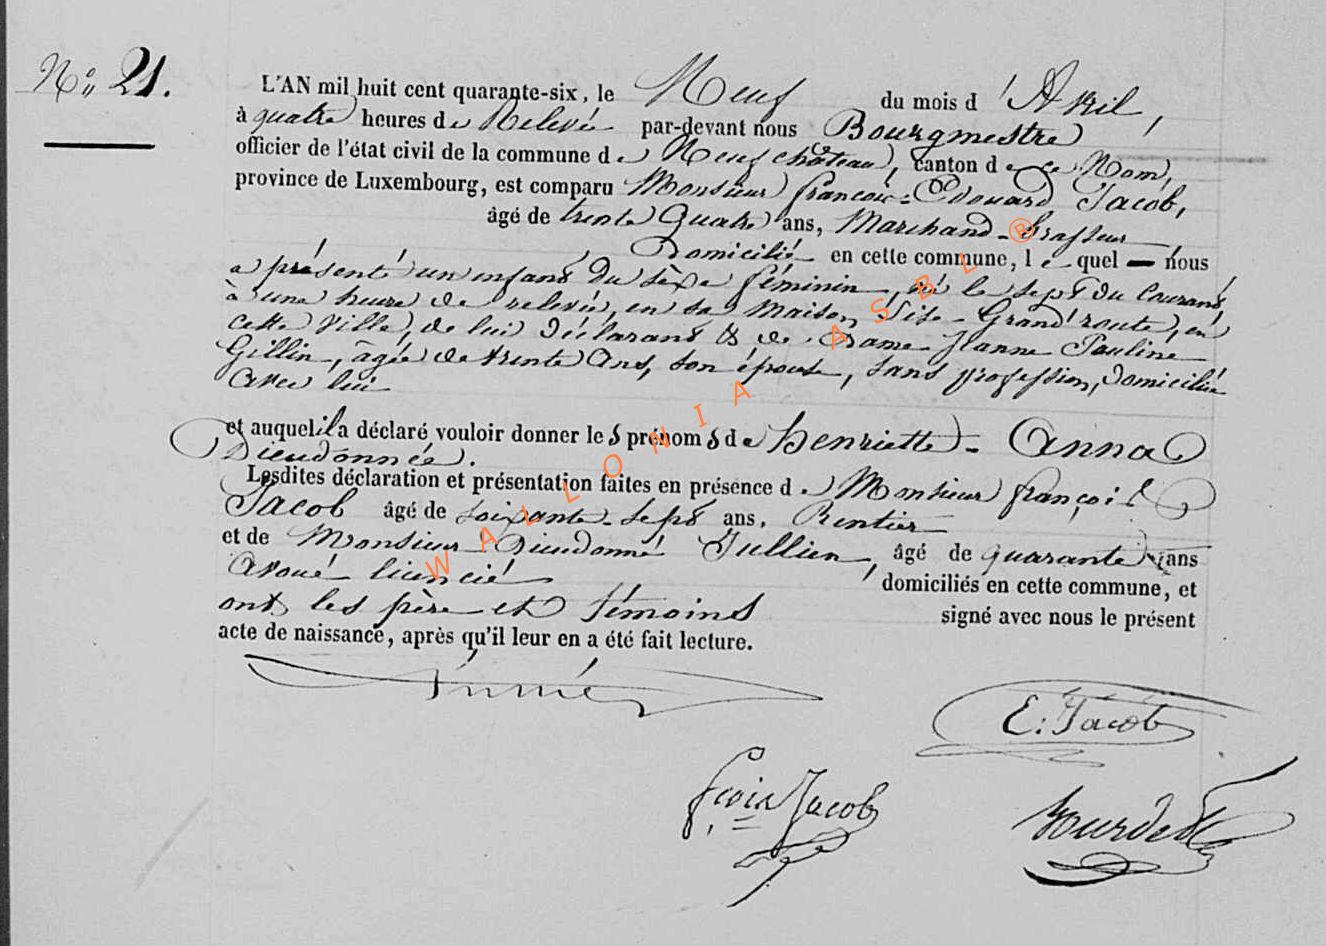 N° 21.
L'AN mil huit cent quarante-six, le Neuf du mois d'Avril,
à quatre heures de Relevée par-devant nous Bourgmestre
officier de l'état civil de la commune de Neufchâteau, canton de ce Nom,
province de Luxembourg, est comparu Monsieur françois-Edouard Jacob,
âgé de trente Quatre ans, Marchand-Brasseur
Domicilié en cette commune, lequel nous
a présenté un enfant du sèxe féminin, né le sept du Courant,
à une heure de relevée, en sa Maison, Sise Grand'route, en
cette Ville, de lui Déclarant & de Dame Jeanne Pauline
Gillin, âgée de trente Ans, son épouse, sans profession, Domiciliée
avec lui
et auquel il a déclaré vouloir donner les prénoms de Henriette-Anna
Dieudonnée.
Lesdites déclaration et présentation faites en présence de Monsieur françois
Jacob âgé de soixante-sept ans, Rentier
et de Monsieur Dieudonné Jullien, âgé de quarante ans
Avoué licencié domiciliés en cette commune, et
ont les père et témoins signé avec nous le présent
acte de naissance, après qu'il leur en a été fait lecture.
E. Jacob
fçois Jacob
WALLONIA ASBL ®